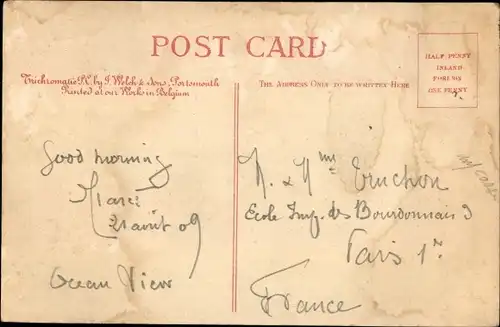 POST CARD
HALF PENNY
INLAND
FOREIGN
ONE PENNY
Trichromatic P.C. by J. Welch & Sons, Portsmouth
Printed at our Works in Belgium
THE ADDRESS ONLY TO BE WRITTEN HERE
Good morning
21 août 09
Ocean View
M. & Mme
Ecole Imp. des Bourdonnais 9
Paris 1r.
France